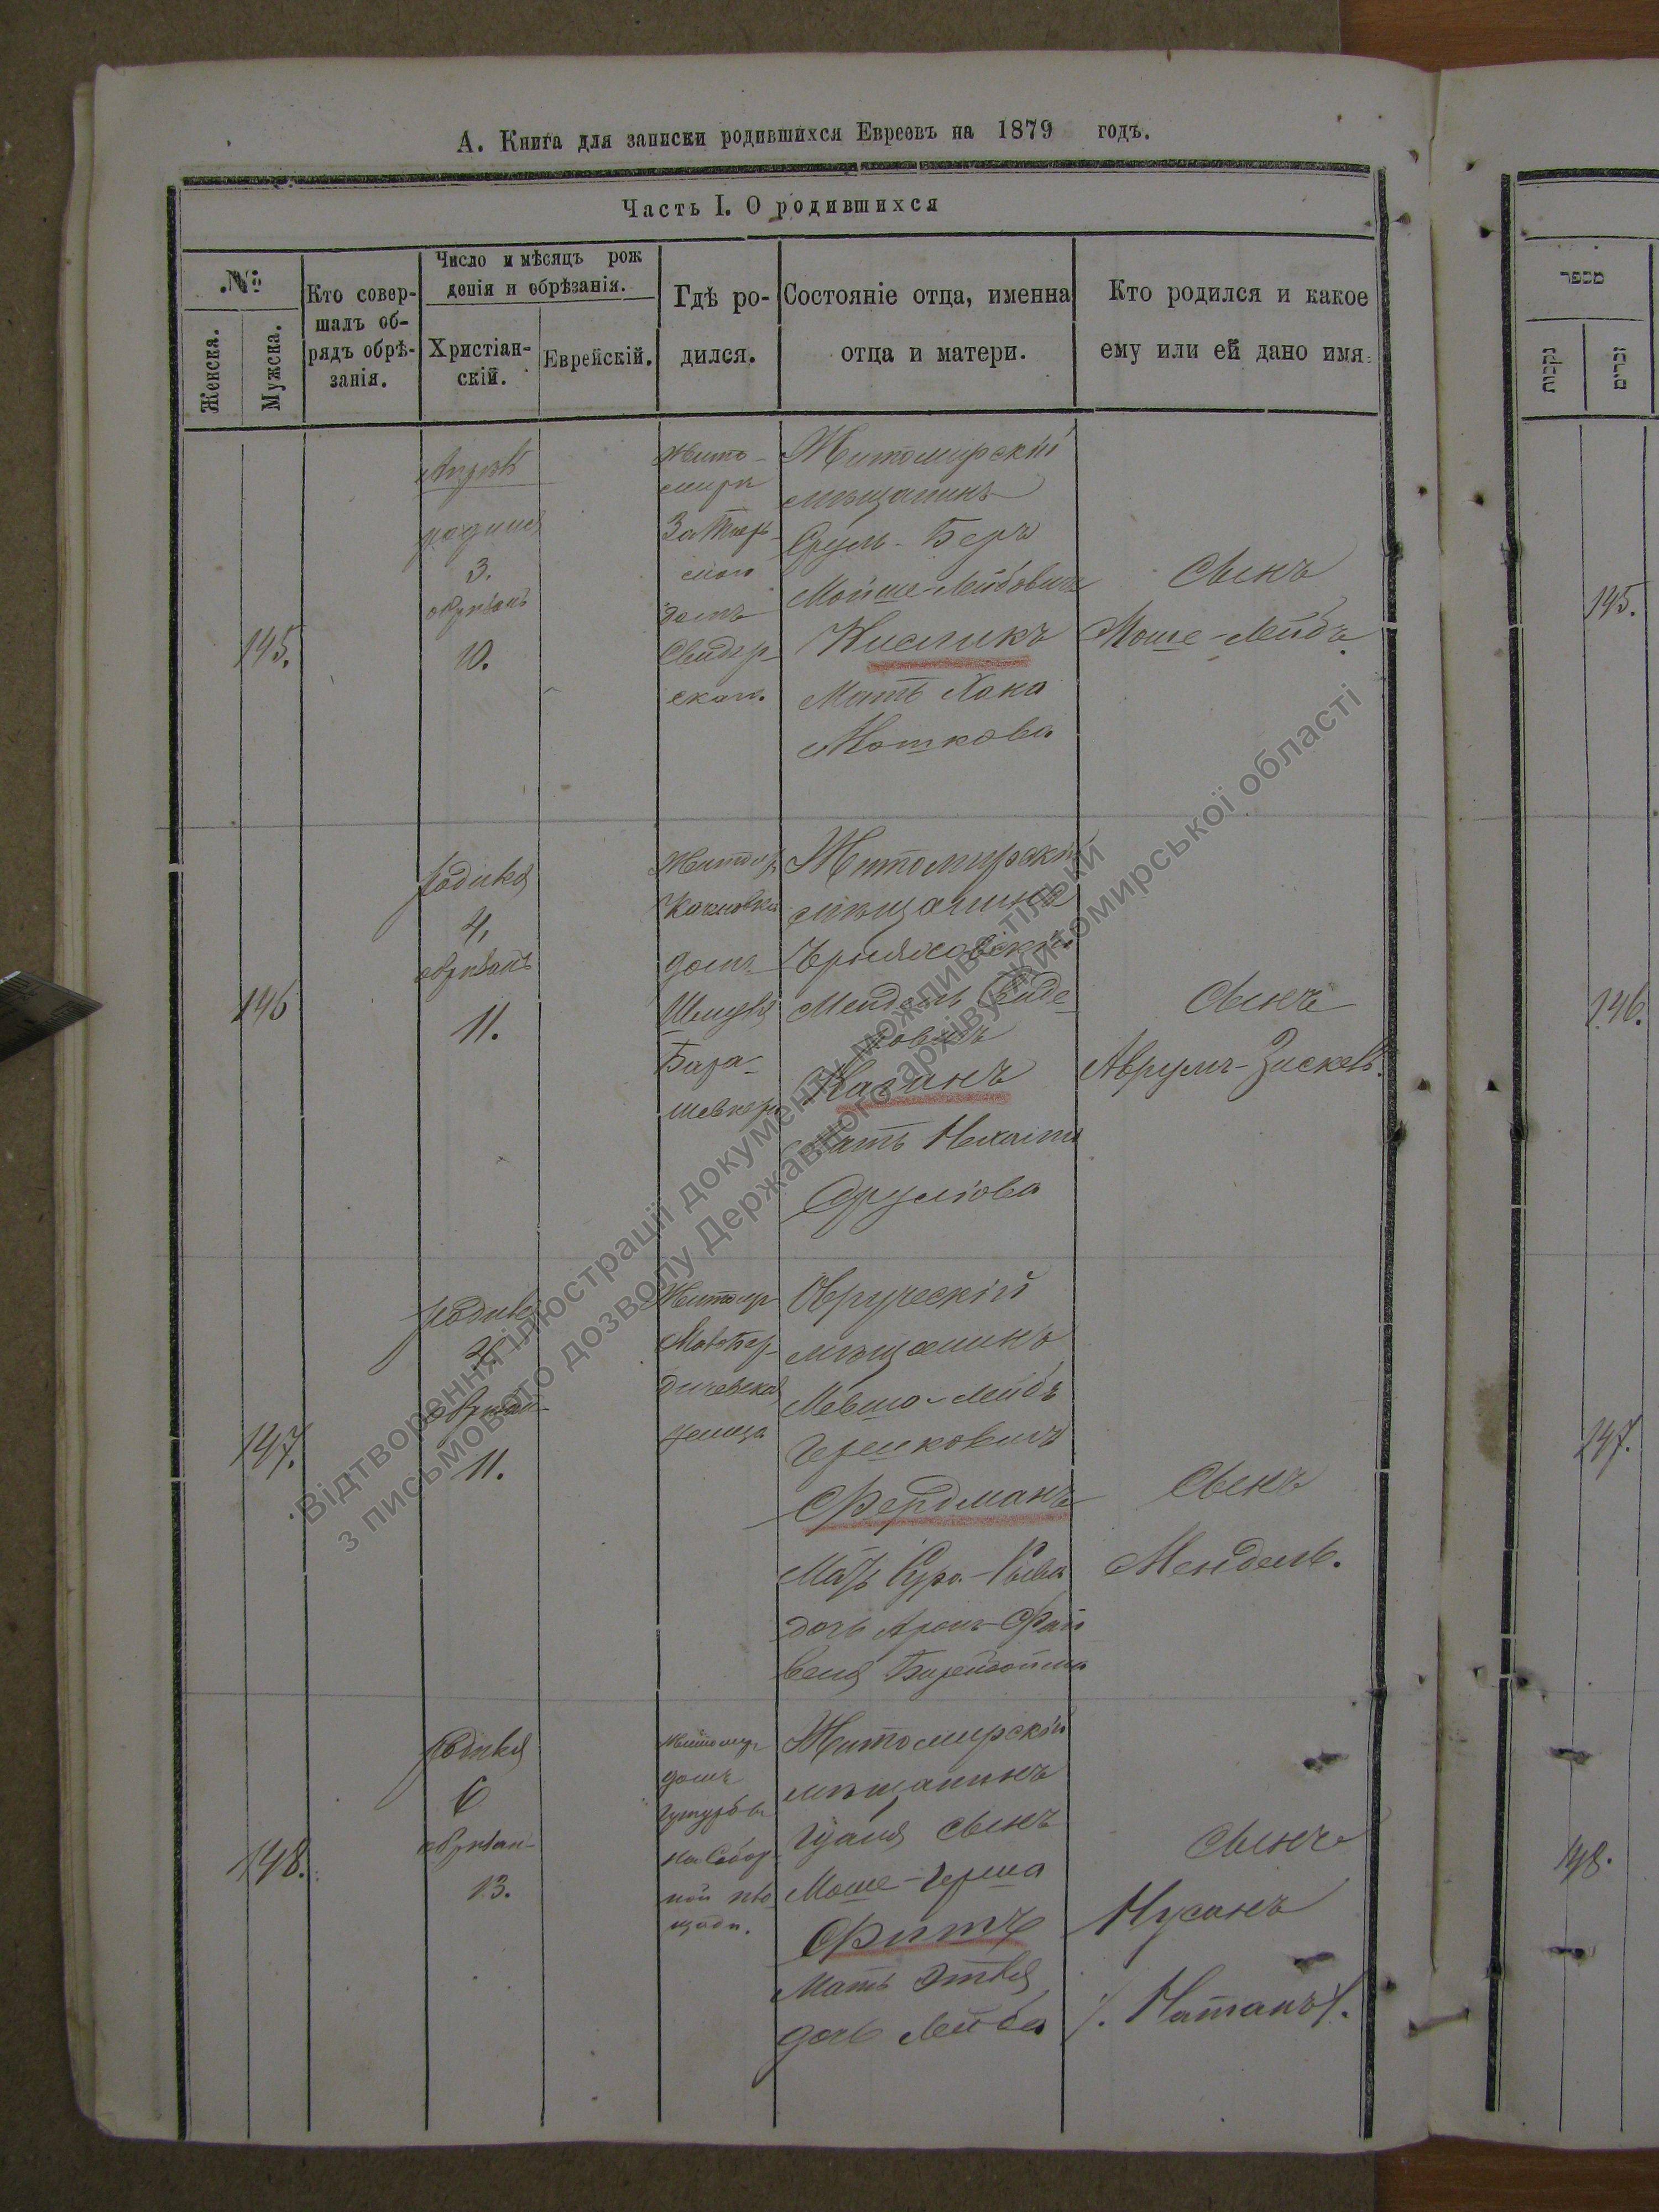 А. Книга для записки родившихся Евреевъ на 1879 годъ.
Часть I. О родившихся
№
Женска.
Мужска.
Кто совер-
шалъ об-
рядъ обрѣ-
занія.
Число и мѣсяцъ рож
денія и обрѣзанія.
Христіан-
скій.
Еврейскій.
Гдѣ ро-
дился.
Состояніе отца, именна
отца и матери.
Кто родился и какое
ему или ей дано имя.
145.
родился
3.
обрѣзанъ
10.
Жито-
миръ
домъ
Свидер-
скаго.
Житомирскій
мѣщанинъ
Сруль-Беръ
Мойше-Лейбовичъ
Кисликъ
Мать Хана
Мошкова
Сынъ
Моше-Лейбъ.
146
родился
4,
обрѣзанъ
11.
Житомир
домъ
Бара-
Житомирскій
мѣщанинъ
Мендель
Каганъ
мать
Срулiова
Сынъ
Аврумъ-Зискель.
147.
родился
4
обрѣзан-
11.
Житомир
дичевская
улица
Овручскій
мѣщанинъ
Мевша-Лейбъ
Гершковичъ
Фердманъ
Мать Сура-Рыва
дочь Аронъ-Фай
веля
Сынъ
Мендель.
148.
родился
6
обрѣзан-
13.
Житомир
домъ
на Собор-
ной пло
щади.
Житомирскій
мѣщанинъ
сынъ
Моше-Герша
Фитъ
Мать Этля
дочь Лейба
сынъ
Нусинъ
/. Натанъ /.
מספר
נקבות
זכרים
145.
146.
147.
148.
Відтворення ілюстрації документу можливе тільки
з письмового дозволу Державного архіву Житомирської області